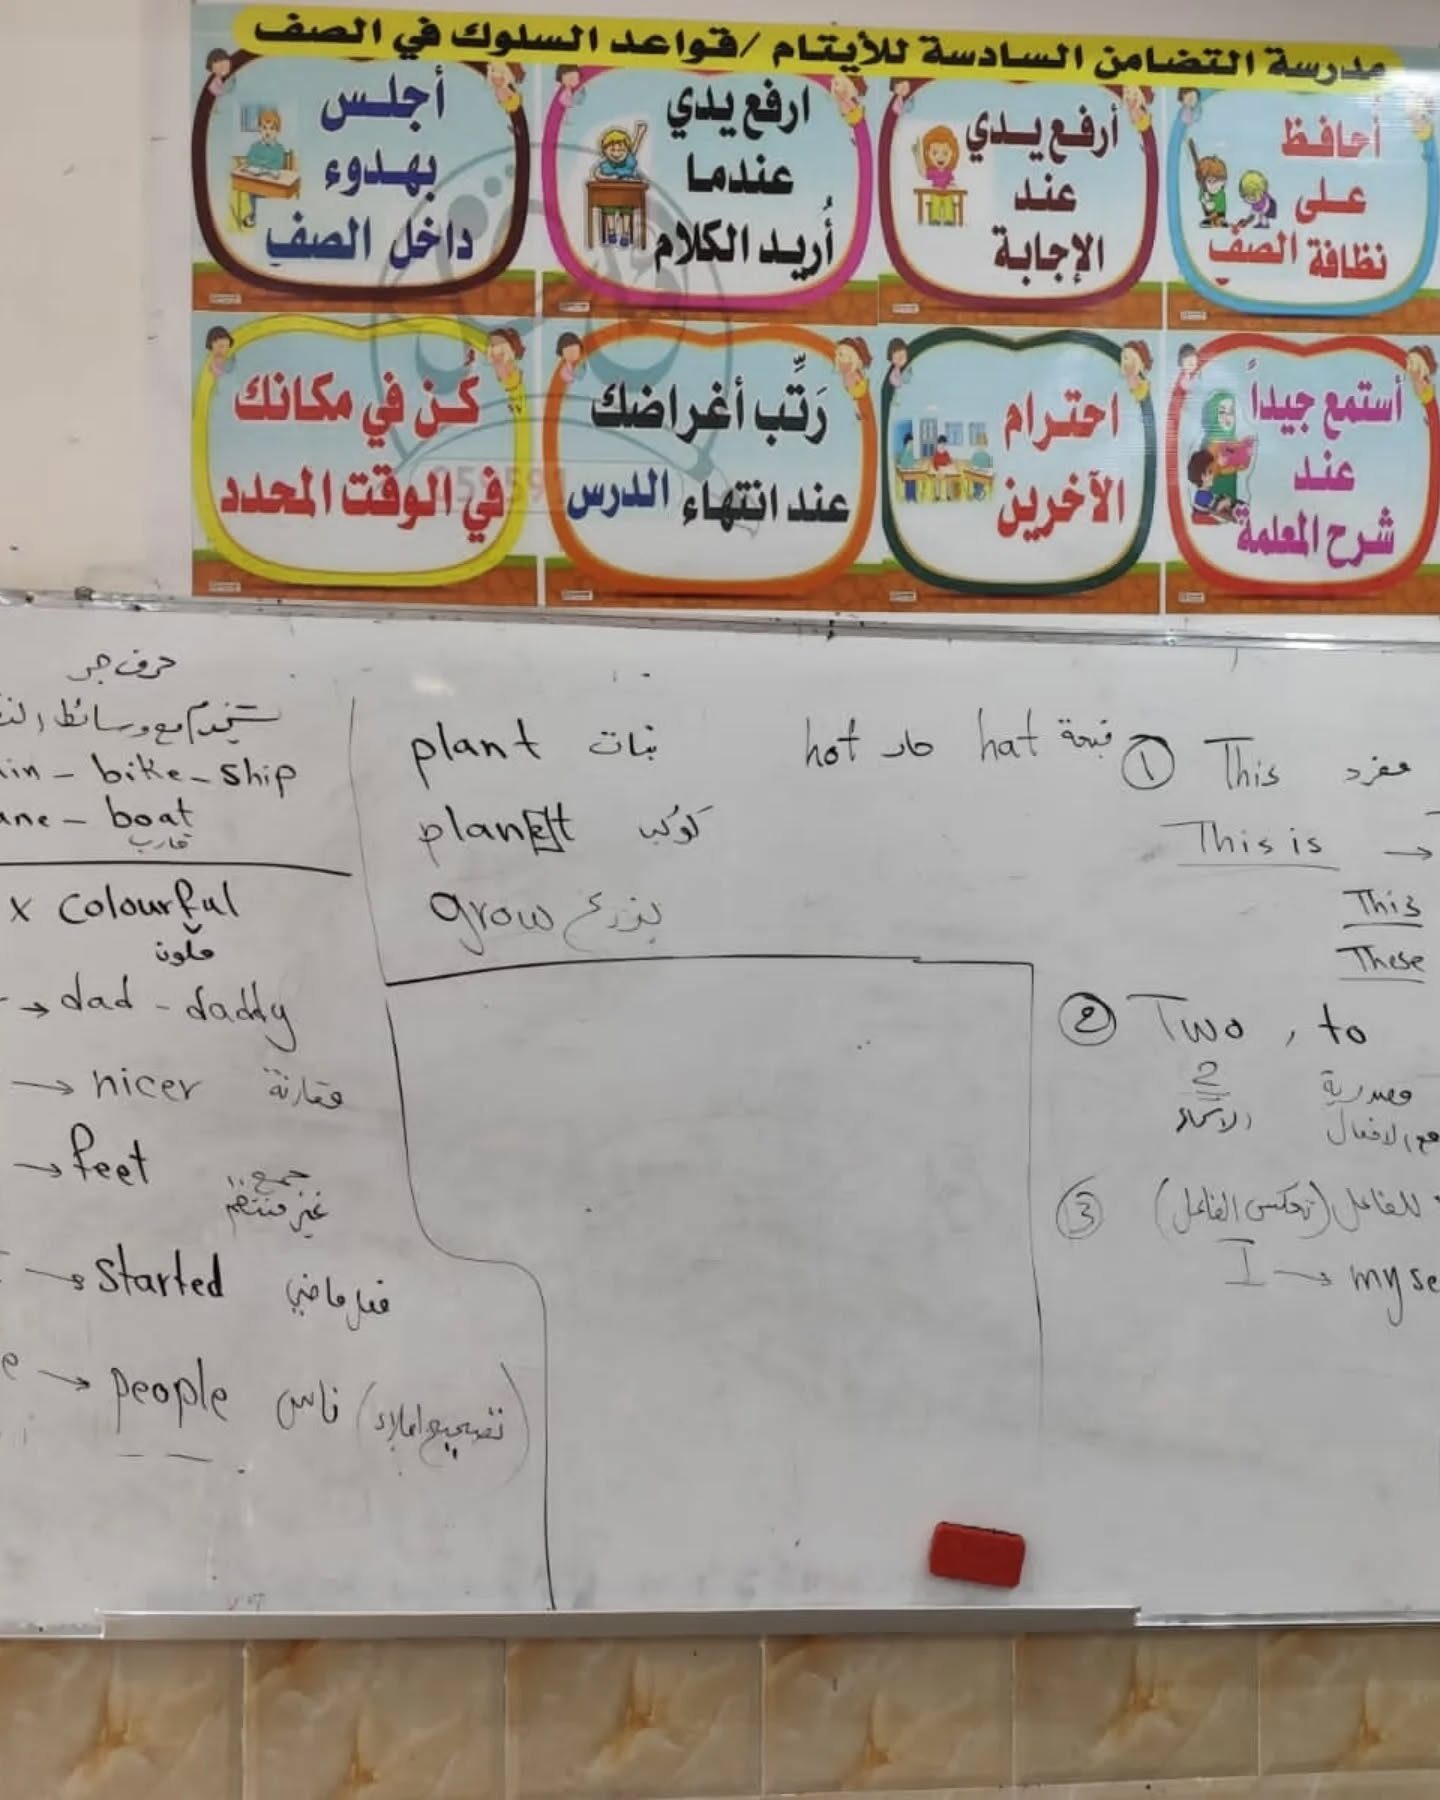 مدرسة التضامن السادسة للأيتام /قواعد السلوك في الصف
أحافظ
على
نظافة الصف
أرفع يدي
عند
الإجابة
ارفع يدي
عندما
أُريد الكلام
أجلس
بهدوء
داخل الصف
أستمع جيداً
عند
شرح المعلمة
احترام
الآخرين
رَتِّب أغراضك
عند انتهاء الدرس
كُن في مكانك
في الوقت المحدد
حرف جر
تستخدم مع وسائط
in - bike - ship
ane - boat
قارب
x colourful
ملون
→ dad - daddy
→ nicer مقارنة
→ feet جمع
غير منتظم
→ started فعل ماضي
e → people ناس (تصحيح املاء)
plant نبات
planet كوكب
grow يزرع
hot حار hat قبعة
① This مفرد
This is →
This
These
② Two , to
2 مصدرية
الاسماء مع الافعال
③ للفاعل (تعكس الفاعل)
I → my se